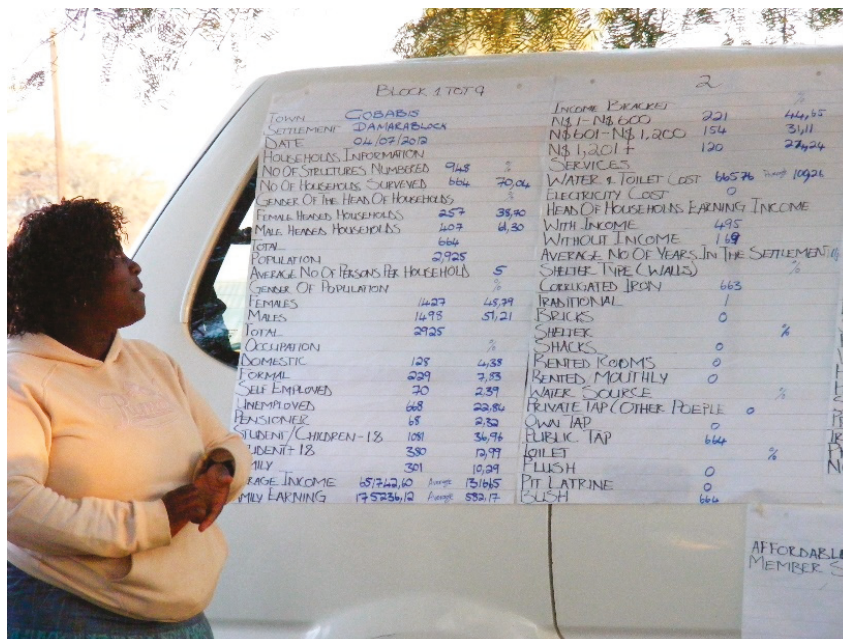 BLOCK 1 TOT 9
TOWN GOBABIS
SETTLEMENT DAMARABLOCK
DATE 04/07/2012
HOUSEHOLDS INFORMATION
NO OF STRUCTURES NUMBERED 948 %
NO OF HOUSEHOLDS SURVEYED 664 70,04
GENDER OF THE HEAD OF HOUSEHOLDS %
FEMALE HEADED HOUSEHOLDS 257 38,70
MALE HEADED HOUSEHOLDS 407 61,30
TOTAL 664
POPULATION 2,925
AVERAGE NO OF PERSONS PER HOUSEHOLD 5
GENDER OF POPULATION %
FEMALES 1427 48,79
MALES 1498 51,21
TOTAL 2925
OCCUPATION %
DOMESTIC 128 4,38
FORMAL 229 7,83
SELF EMPLOYED 70 2,39
UNEMPLOYED 668 22,84
PENSIONER 68 2,32
STUDENT/CHILDREN-18 1081 36,96
UDENT+18 380 12,99
MILY 301 10,29
ERAGE INCOME 651742,60 Average 1316,65
MILY EARNING 175236,12 Average 582,17
2
INCOME BRACKET %
N$1-N$600 221 44,65
N$601-N$1,200 154 31,11
N$1,201+ 120 24,24
SERVICES
WATER & TOILET COST 66576 Average 100,26
ELECTRICITY COST 0
HEAD OF HOUSEHOLDS EARNING INCOME
WITH INCOME 495
WITHOUT INCOME 169
AVERAGE NO OF YEARS IN THE SETTLEMENT
SHELTER TYPE (WALLS) %
CORRUGATED IRON 663
TRADITIONAL 1
BRICKS 0
SHELTER %
SHACKS 0
RENTED ROOMS 0
RENTED MOUTHLY 0
WATER SOURCE %
PRIVATE TAP (OTHER POEPLE 0
OWN TAP 0
PUBLIC TAP 664
TOILET %
FLUSH 0
PIT LATRINE 0
BUSH 664
AFFORDABLE
MEMBER S